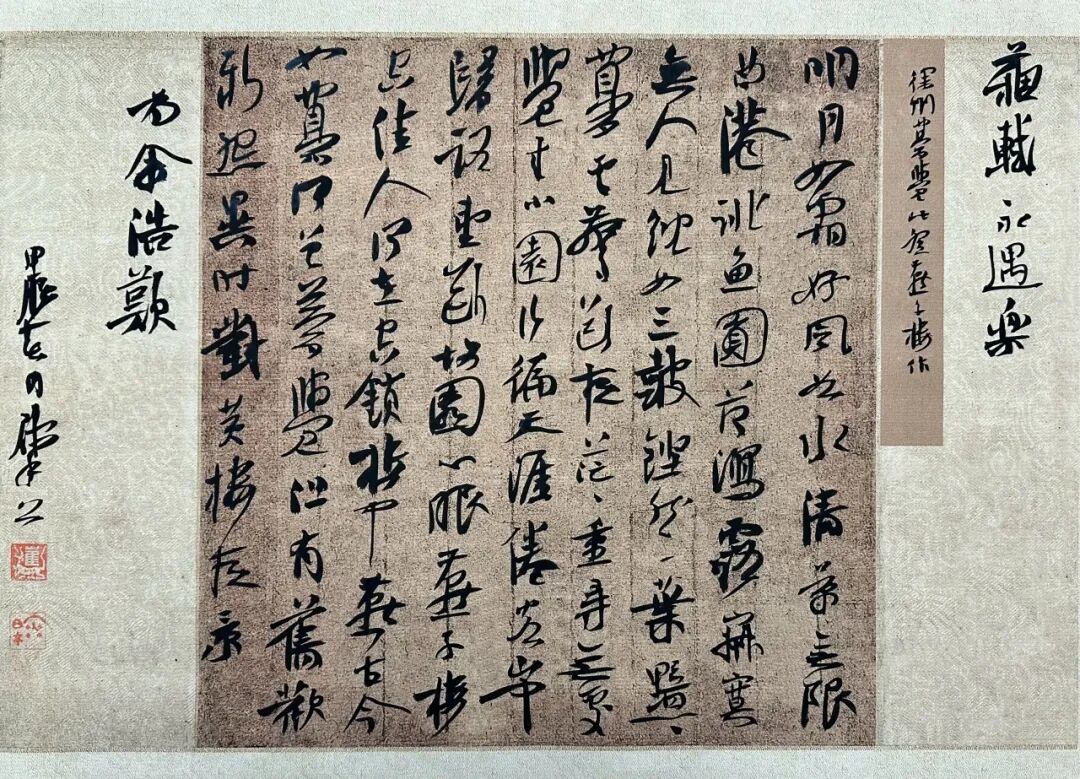 蘇軾永遇樂
徐州夢覺北登燕子樓作
明月如霜好風如水清景無限
曲港跳魚圓荷瀉露寂寞
無人見紞如三鼓鏗然一葉黯、
夢雲驚斷夜茫、重尋無處
覺來小園行遍天涯倦客山中
歸路望斷故園心眼燕子樓
空佳人何在空鎖樓中燕古今
如夢何曾夢覺但有舊歡
新怨異時對黃樓夜景
為余浩歎
甲辰